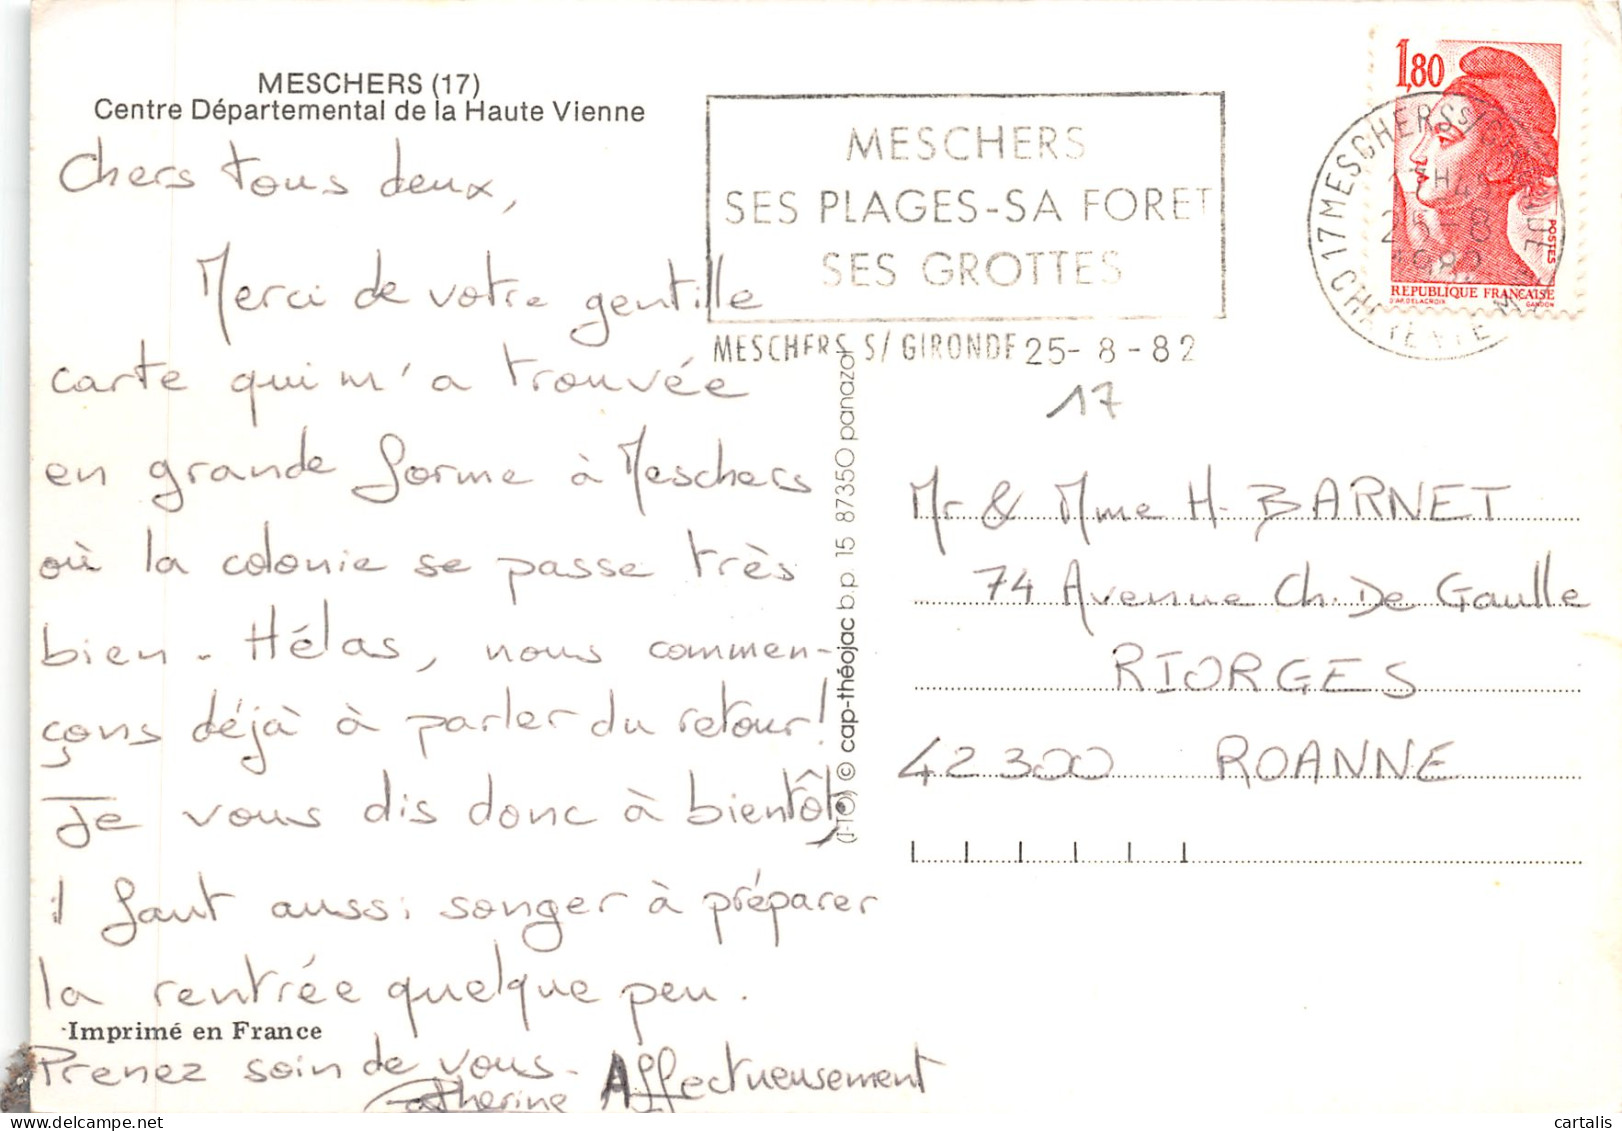 MESCHERS (17)
Centre Départemental de la Haute Vienne
Chers tous deux,
Merci de votre gentille
carte qui m'a trouvée
en grande forme à Meschers
où la colonie se passe très
bien. Hélas, nous commen-
çons déjà à parler du retour!
Je vous dis donc à bientôt,
il faut aussi songer à préparer
la rentrée quelque peu.
Imprimé en France
Prenez soin de vous.
Affectueusement
Catherine
(J-10) © cap-théojac b.p. 15 87350 panazol
MESCHERS
SES PLAGES-SA FORET
SES GROTTES
MESCHERS S/ GIRONDE 25-8-82
17 MESCHERS S/ GIRONDE
25-8
1982
CHTE MME
1,80
POSTES
REPUBLIQUE FRANÇAISE
D'AP. DELACROIX GANDON
17
Mr & Mme H. BARNET
74 Avenue Ch. De Gaulle
RIORGES
42300 ROANNE
cartalis